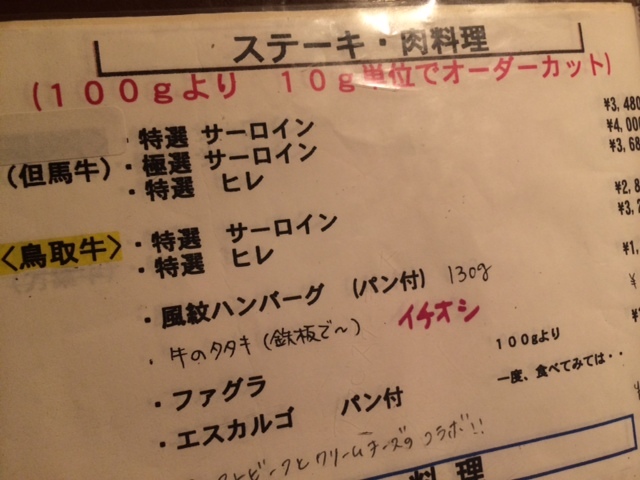 ステーキ・肉料理
(100gより 10g単位でオーダーカット)
・特選 サーロイン ¥3,480
(但馬牛)・極選 サーロイン ¥4,000
・特選 ヒレ ¥3,68
・特選 サーロイン ¥2,8
<鳥取牛>・特選 ヒレ ¥3,7
・風紋ハンバーグ (パン付) 130g ¥1,
・牛のタタキ (鉄板で〜) イチオシ ¥
・ファグラ 100gより
・エスカルゴ パン付 一度、食べてみては・・
ビーフとクリームチーズのコラボ!!
料理